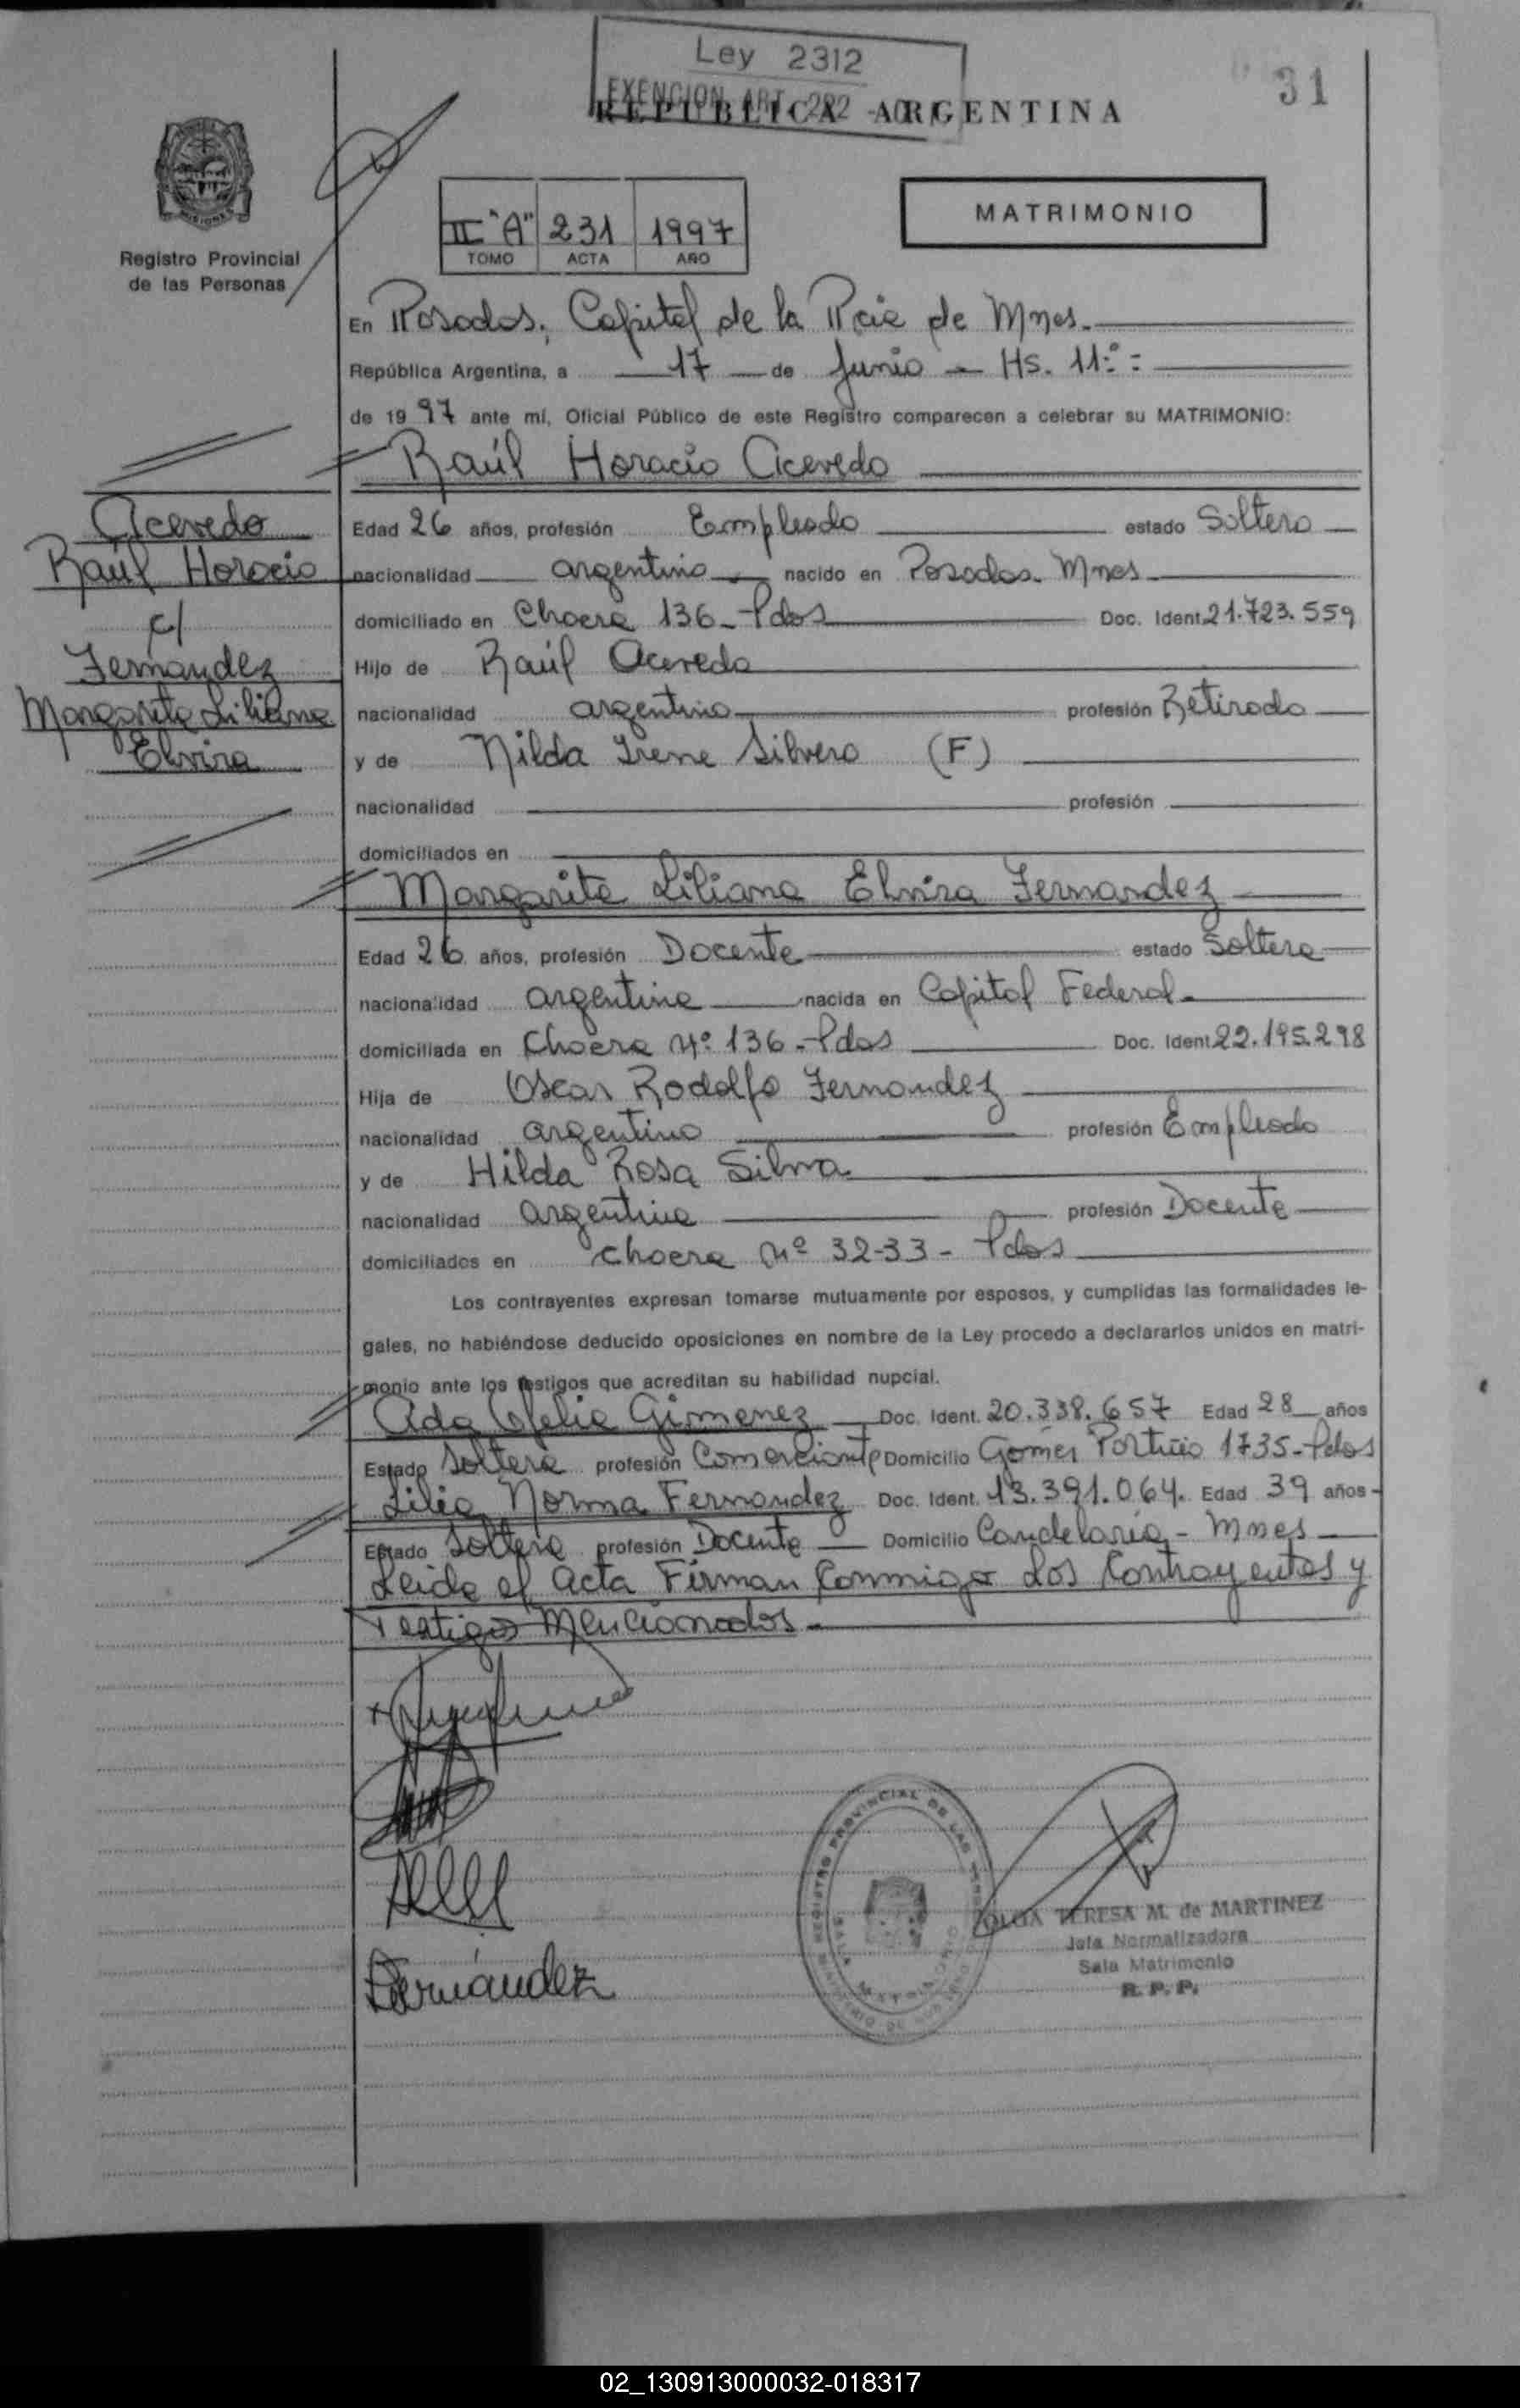 Ley 2312
EXENCION ART. 282
31
REPUBLICA ARGENTINA
MISIONES
Registro Provincial
de las Personas
II "A" 231 1997
TOMO ACTA AÑO
MATRIMONIO
En Posadas, Capital de la Pcia de Mnes.
República Argentina, a 17 de Junio - Hs. 11:
de 1997 ante mí, Oficial Público de este Registro comparecen a celebrar su MATRIMONIO:
Raúl Horacio Acevedo
Acevedo
Raúl Horacio
c/
Fernández
Margarita Liliana
Elvira
Edad 26 años, profesión Empleado estado Soltero
nacionalidad argentino nacido en Posadas. Mnes
domiciliado en Chacra 136 - Pdas Doc. Ident. 21.723.559
Hijo de Raúl Acevedo
nacionalidad argentino profesión Retirado
y de Nilda Irene Silvero (F)
nacionalidad profesión
domiciliados en
Margarita Liliana Elvira Fernandez
Edad 26 años, profesión Docente estado Soltera
nacionalidad argentina nacida en Capital Federal
domiciliada en Chacra Nº 136 - Pdas Doc. Ident. 22.195.298
Hija de Oscar Rodolfo Fernandez
nacionalidad argentino profesión Empleado
y de Hilda Rosa Silva
nacionalidad argentina profesión Docente
domiciliados en Chacra Nº 32-33 - Pdas
Los contrayentes expresan tomarse mutuamente por esposos, y cumplidas las formalidades le-
gales, no habiéndose deducido oposiciones en nombre de la Ley procedo a declararlos unidos en matri-
monio ante los testigos que acreditan su habilidad nupcial.
Ada Ofelia Gimenez Doc. Ident. 20.338.657 Edad 28 años
Estado Soltera profesión Comerciante Domicilio Gomes Portiño 1735 - Pdas
Lilia Norma Fernandez Doc. Ident. 13.391.064. Edad 39 años
Estado Soltera profesión Docente Domicilio Candelaria - Mnes
Leida el Acta Firman Conmigo Los Contrayentes y
Testigos Mencionados
Fernández
REGISTRO PROVINCIAL DE LAS
OLGA TERESA M. de MARTINEZ
Jefa Normalizadora
Sala Matrimonio
R. P. P.
02_130913000032-018317